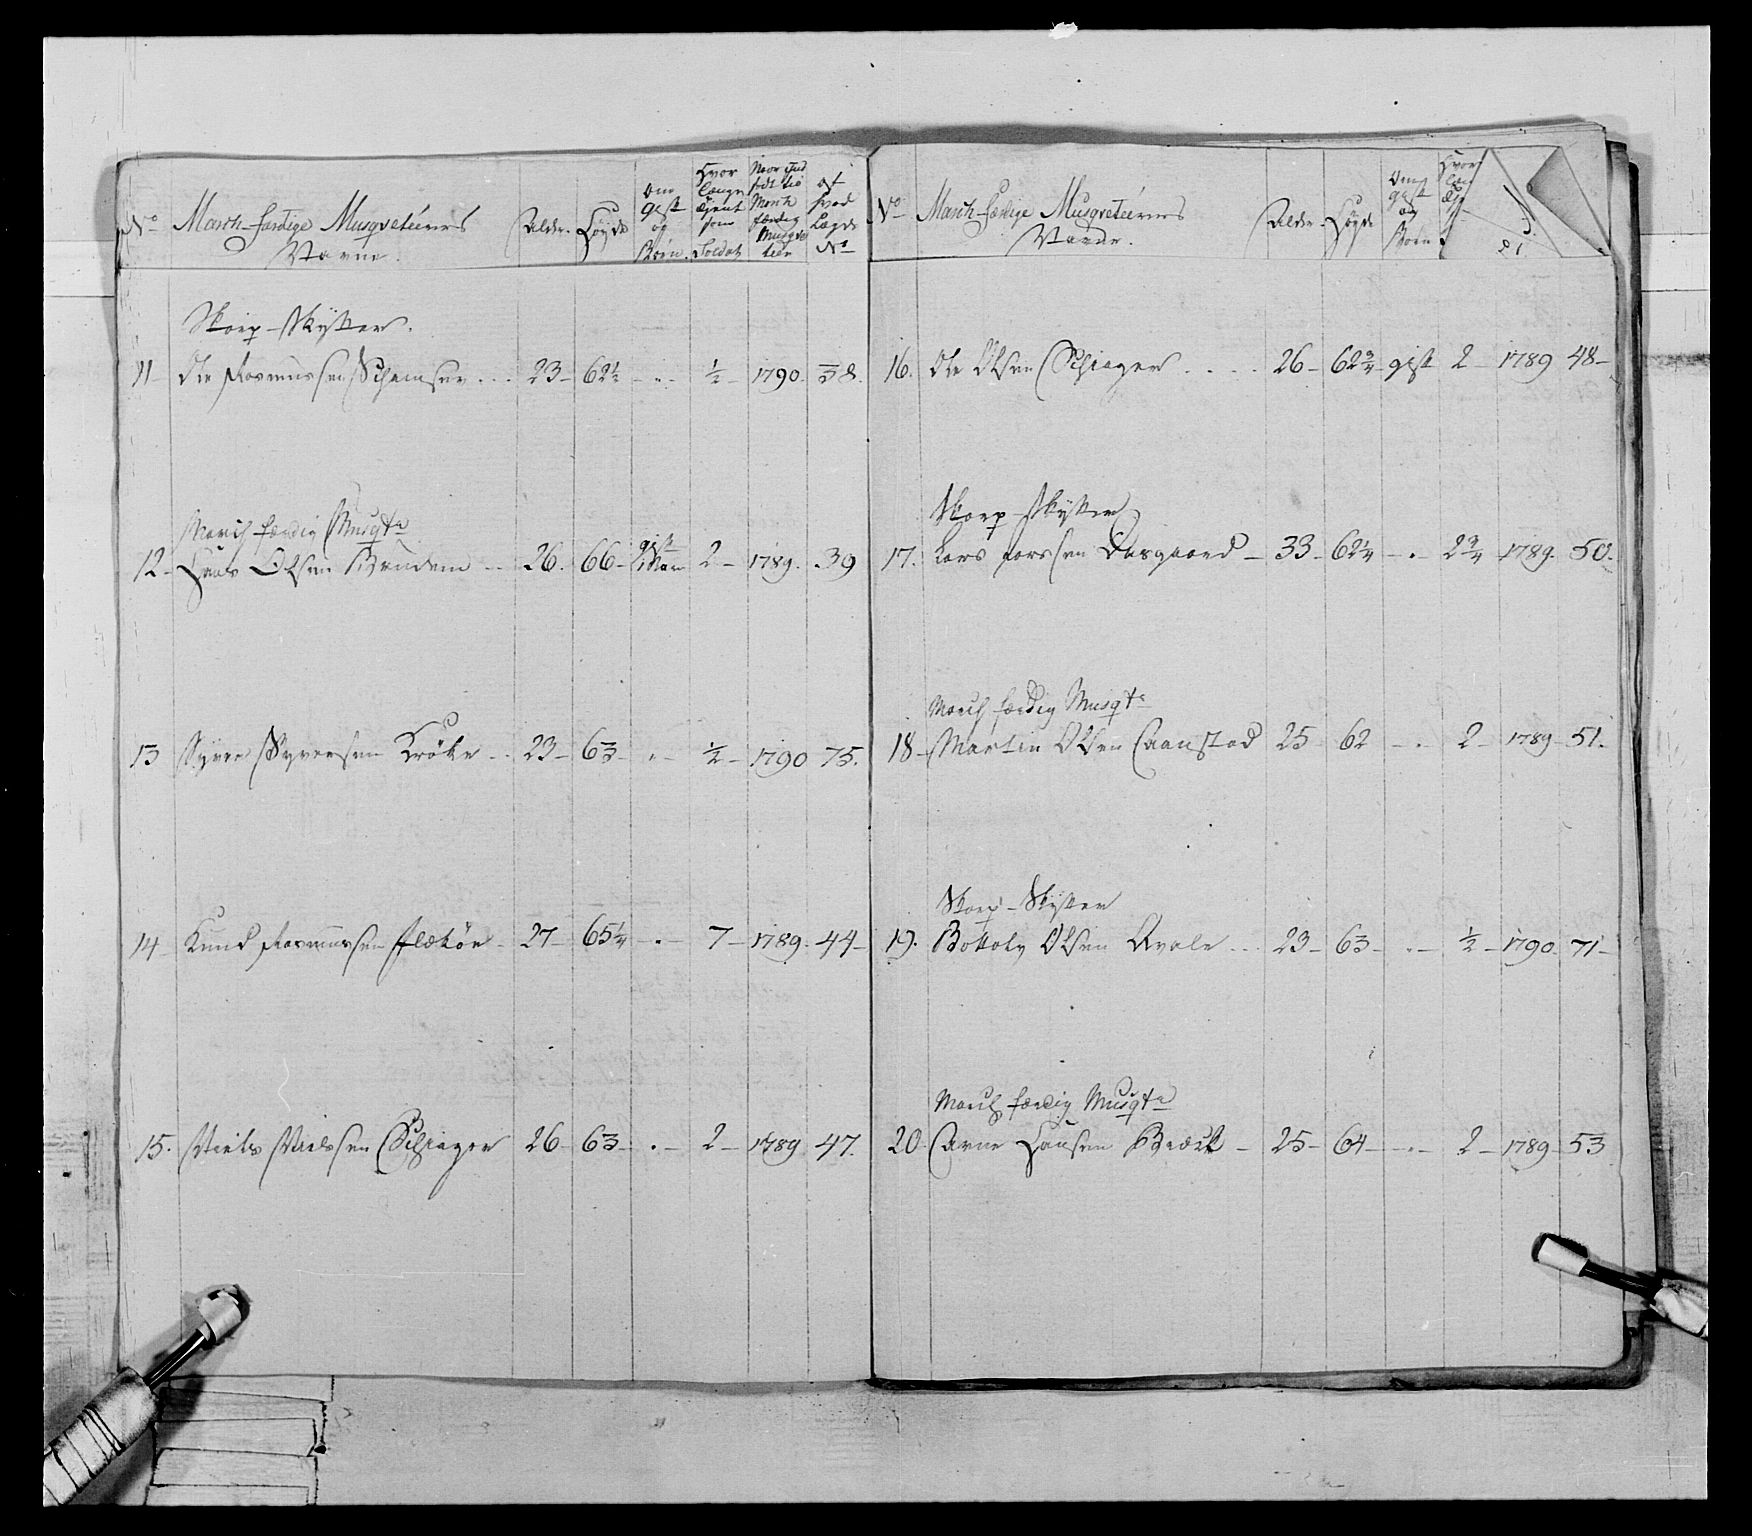 No March-færdige Musqveteirers Navne. Alder. Høyde Om gift og Børn. Hvor længe tjent som Soldat Naar ind født til March færdig Musqve teer af hvad Lægds No
Skarp-Skytter.
11 Ole Rasmussen 23 62½ ½ 1790. 38.
March færdig Musqtr
12 Hans Olsen 26. 66 gift 2 1789. 39
13 Syver Syversen Kröke 23 63 ½ 1790 75.
14 Knud Rasmussen Fleköe 27 65¼ 7 1789. 44
15. Niels Nielsen 26 63 2 1789 47.
No March-færdige Musqveteirers Navne. Alder. Høyde Om gift og Børn Hvor
16. Ole Olsen 26 62¾ gift 2 1789 48
Skarp-Skytter
17. Lars Larssen Aasgaard 33 62¼ 2¾ 1789. 50.
March færdig Musqtr
18 Martin Olsen Aanstad 25 62 2 1789 51.
Skarp-Skytter
19. Botholv Olsen 23 63 ½ 1790. 71
March færdig Musqtr
20 Arne Hansen 25 64 2 1789 53